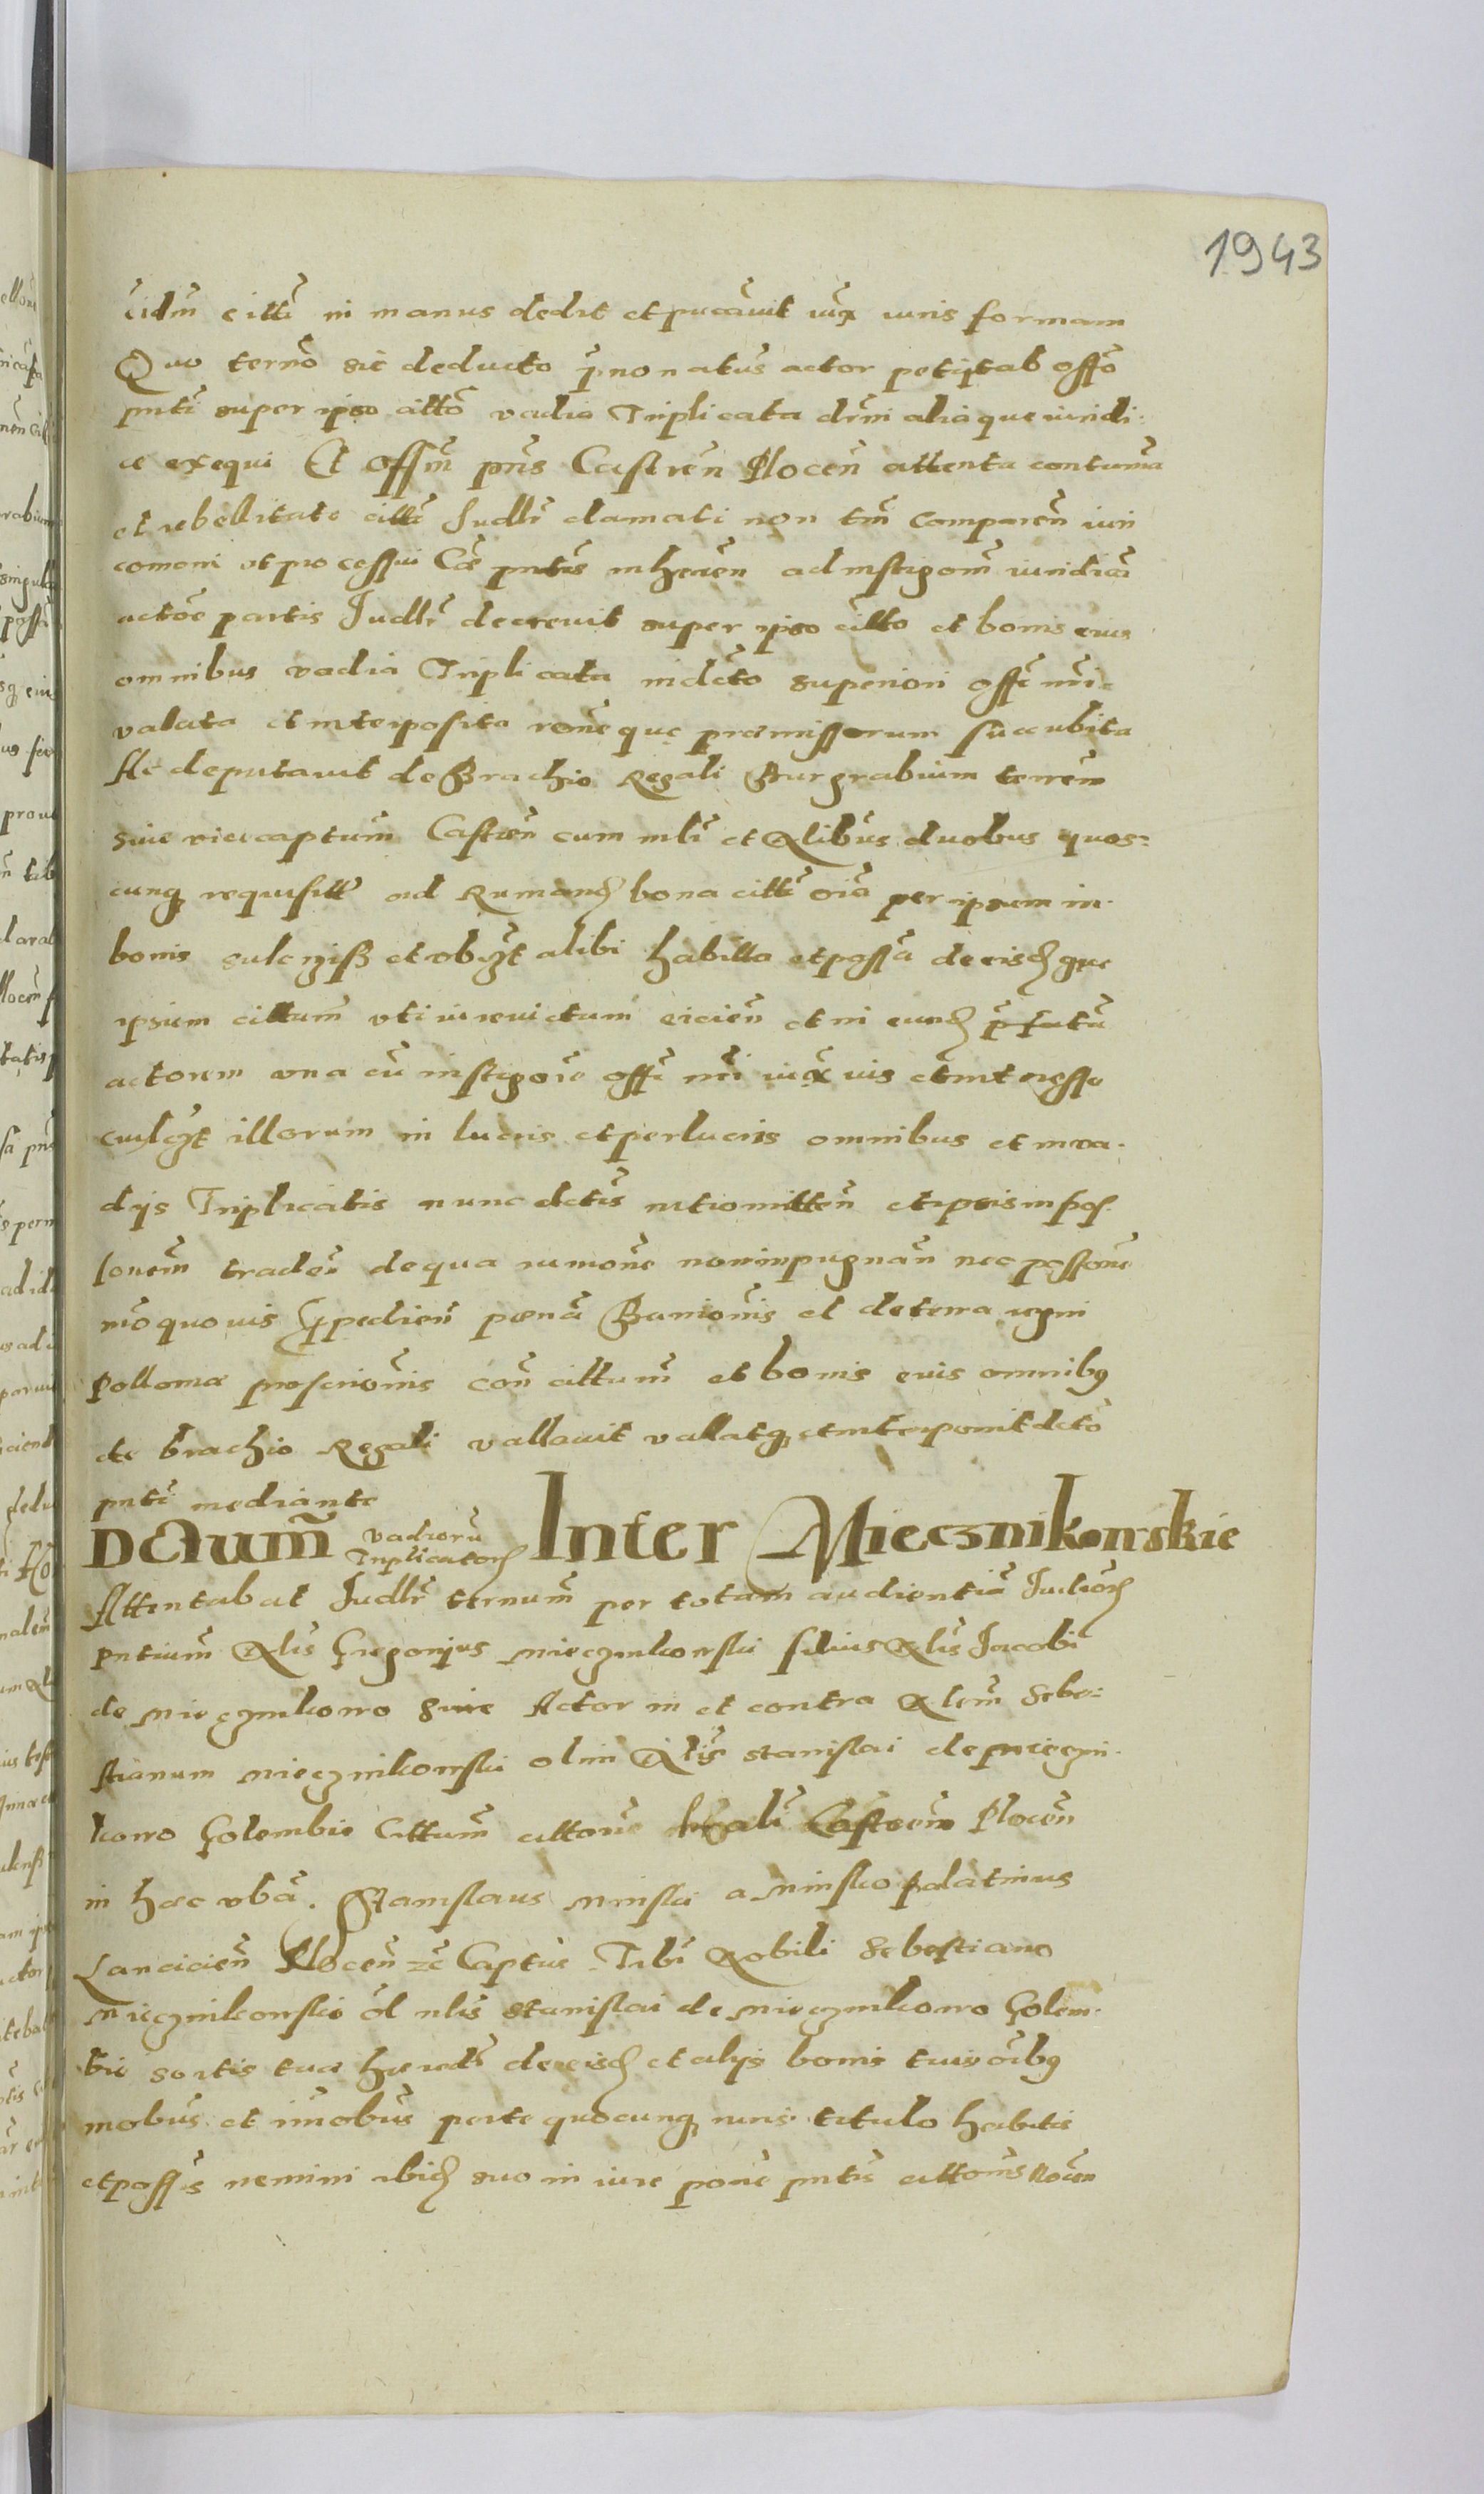 1943
eidm citti in manus dedit et pucavit iux iuris formam
Quo termo sic deducto pnonatus actor petijt ab offo
pnti super ipso citto vadia Triplicata decni alia que iuridi
ce exequi Et Offm pns Castren Plocen attenta contuma
et rebellitate citti Judlr clamati non tm Comparen iuri
comoni et processui Cae pntis inheren ad instigom iuridica
actore partis Judlr decrevit super ipso citto et bonis eius
omnibus vadia Triplicata indcto superiori offi nri
valata et interposita roneque praemissorum succubita
Ac deputavit de Brachio Regali Burgrabium terren
sive vicecaptum Castren cum mli et Nlibus duobus quos=
cunq requisitt ad Rumand bona citti oia per ipsum in
bonis et ubiqt alibi habitta et possa de eisd que
ipsum cittum uti iurevictum eicien et in eund pfatu
actorem una cu instigore offi nri iux ius et interesse
cuilzt illorum in lucris et perlucris omnibus et in va
dijs Triplicatis nunc dctis intromitten et ipsis in pos
sonem traden de qua rumone non impugnan nec possone
mo quovis Expedien poena Banionis et de terra regni
Polloniae proscrionis con cittum et bonis eius omnibq
de brachio Regali vallavit vallatq et interponit dcto
pnti mediante
Dctum vadioru Triplicatord Inter Miecznikowskie
Attentabat Judlr ternum per totam audientia Judiord
pntium Nlis Gregorius Miecznikowski filius Nlis Jacobi
de Miecznikowo Sive Actor in et contra Nlem Seba=
stianum Miecznikowski olim Nlis Stanislai de Mieczni
kowo Golembie Cittum cittone Castren Plocen
in haec vba. Stanislaus Minski a Minsko Palatinus
Lancicien Plocen zc Captus Tibi Nobili Sebastiano
Miecznikowski ol nlis Stanislai de Miecznikowo Golem
bie sortis tuae haeredi de eisd et alijs bonis tuis oibq
mobus et imobus parte quocunq iuris titulo habitis
et possis nemini ibid suo in iure pone pntis cittonis Plocen